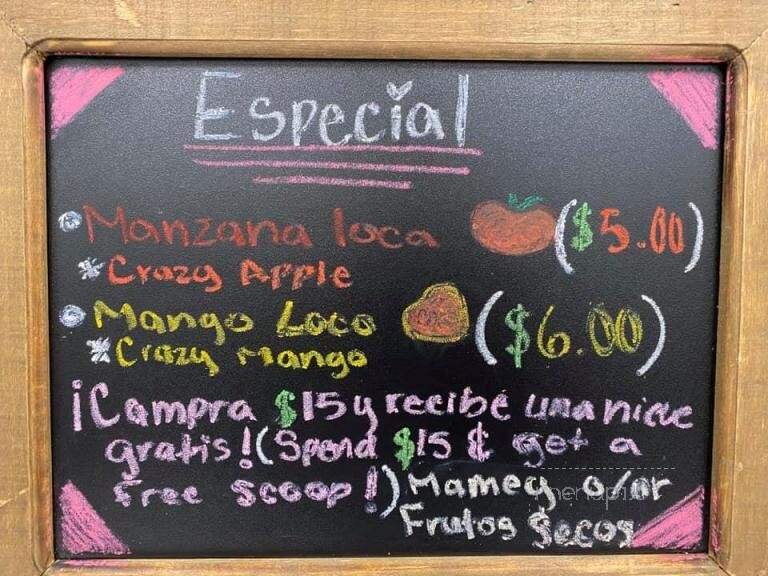 Especial
Manzana loca ($5.00)
*Crazy Apple
Mango Loco ($6.00)
*Crazy mango
¡Campra $15 y recibe una nieve
gratis! (Spend $15 & get a
free scoop!) Mamey o/or
Frutos Secos